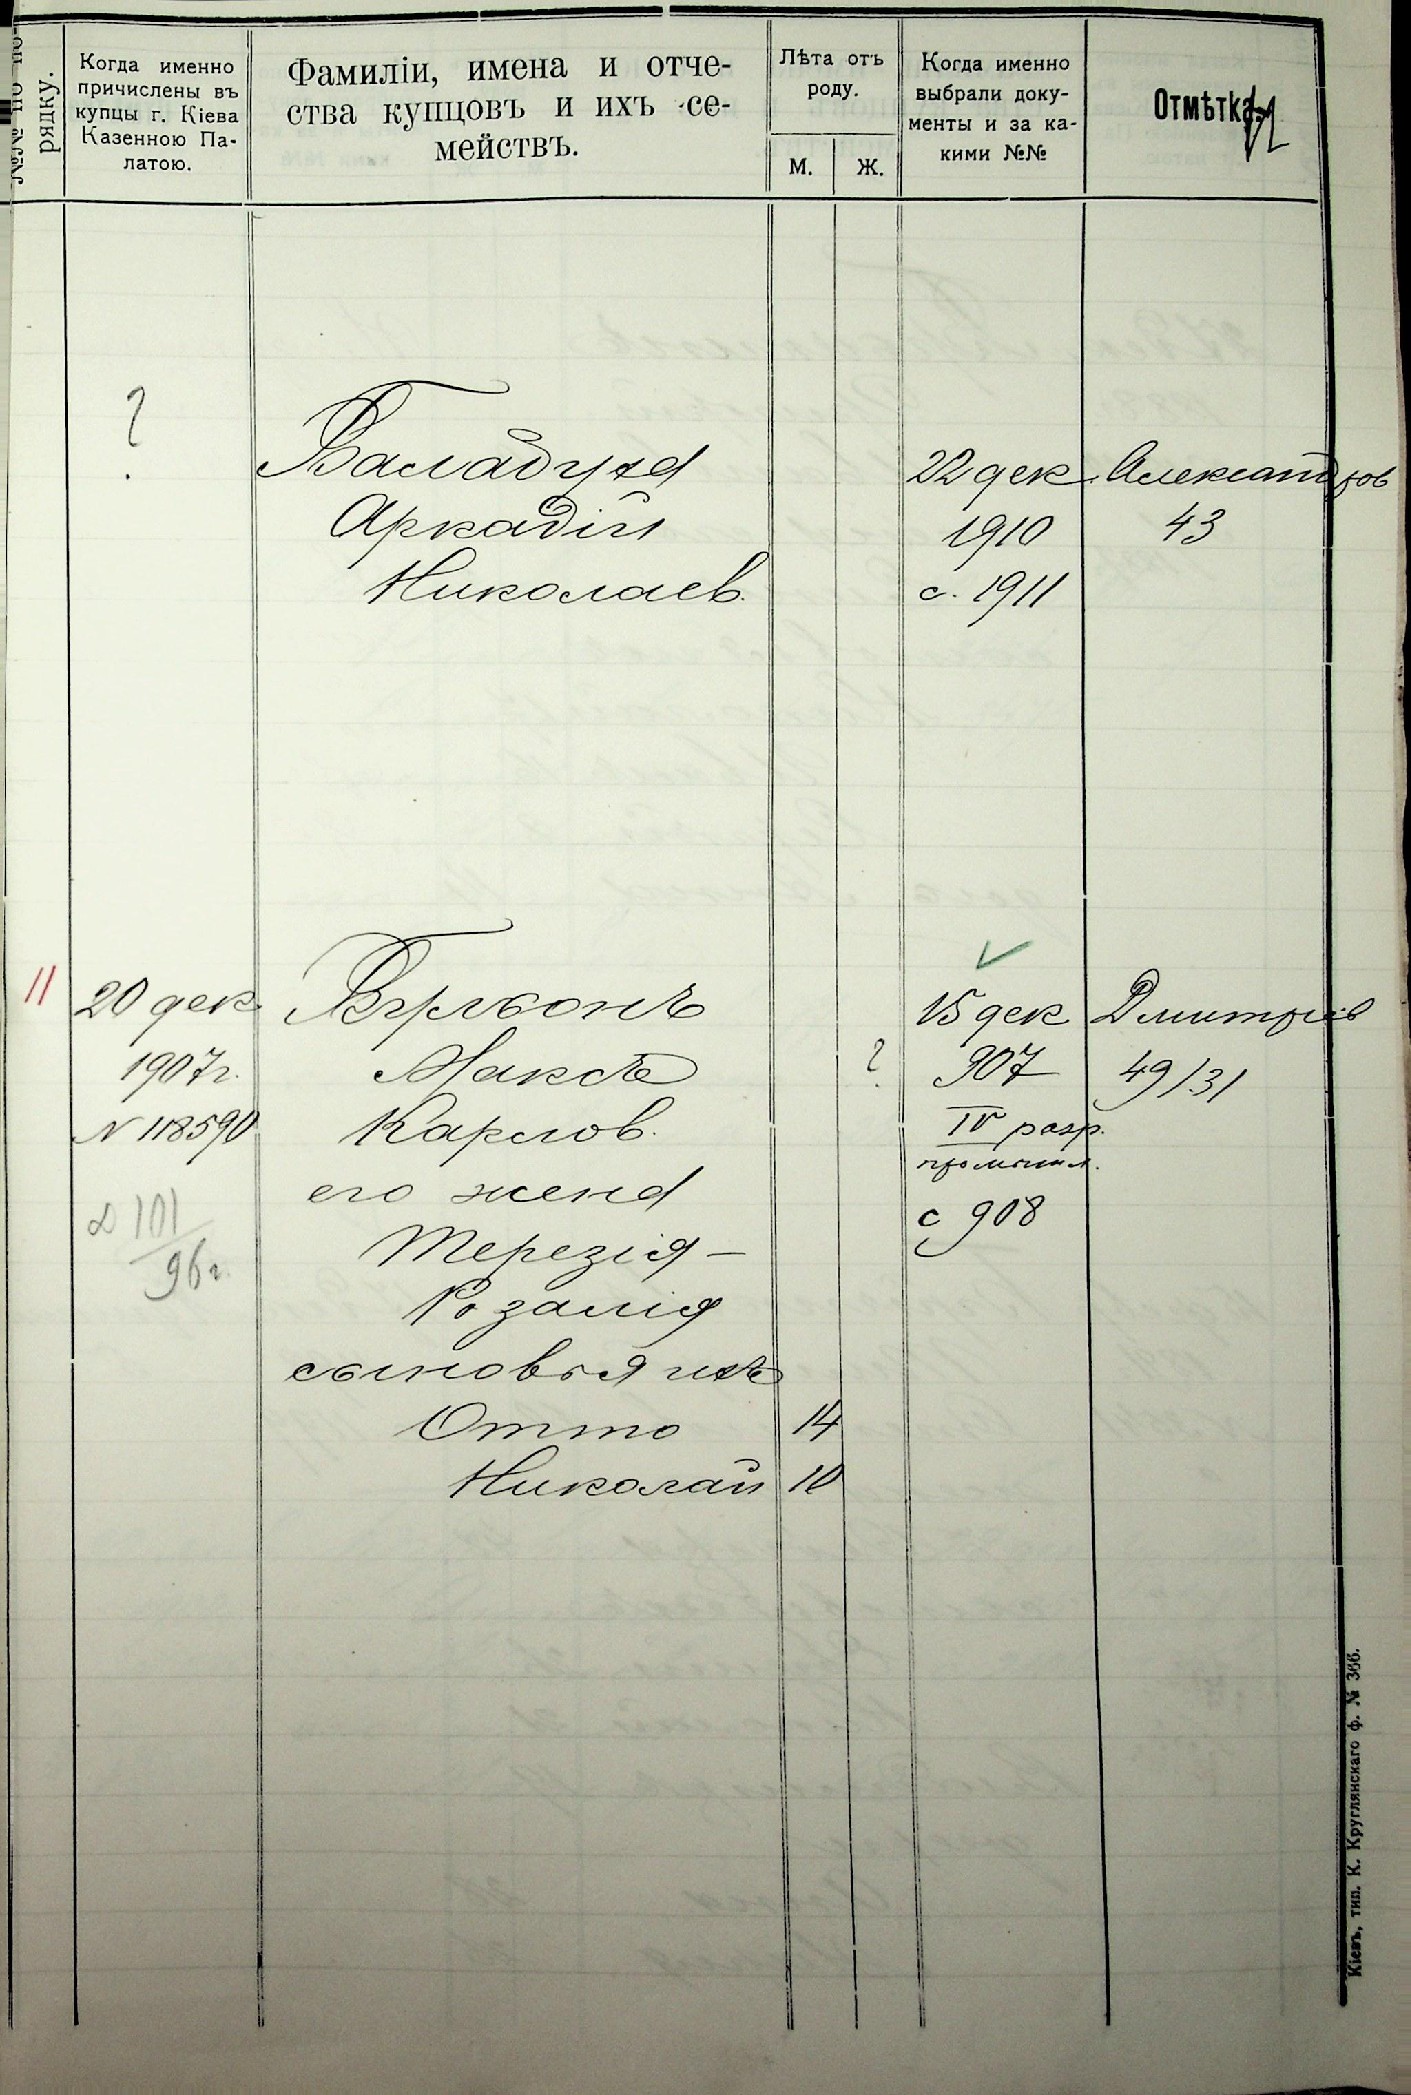 №№ по по-
рядку.
Когда именно
причислены въ
купцы г. Кіева
Казенною Па-
латою.
Фамиліи, имена и отче-
ства купцовъ и ихъ се-
мействъ.
Лѣта отъ
роду.
М.
Ж.
Когда именно
выбрали доку-
менты и за ка-
кими №№
Отмѣтка
?
Баладуха
Аркадій
Николаев.
22 дек.
1910
с. 1911
Александров
43
11
20 дек.
1907 г.
N 118590
д 101
96 г.
Максъ
Карлов.
его жена
Терезія-
Розалія
сыновья ихъ
Отто 14
Николай 10
?
15 дек
907
IV разр.
промышл.
с 908
Дмитріев
49/31
Кіевъ, тип. К. Круглянскаго ф. № 366.